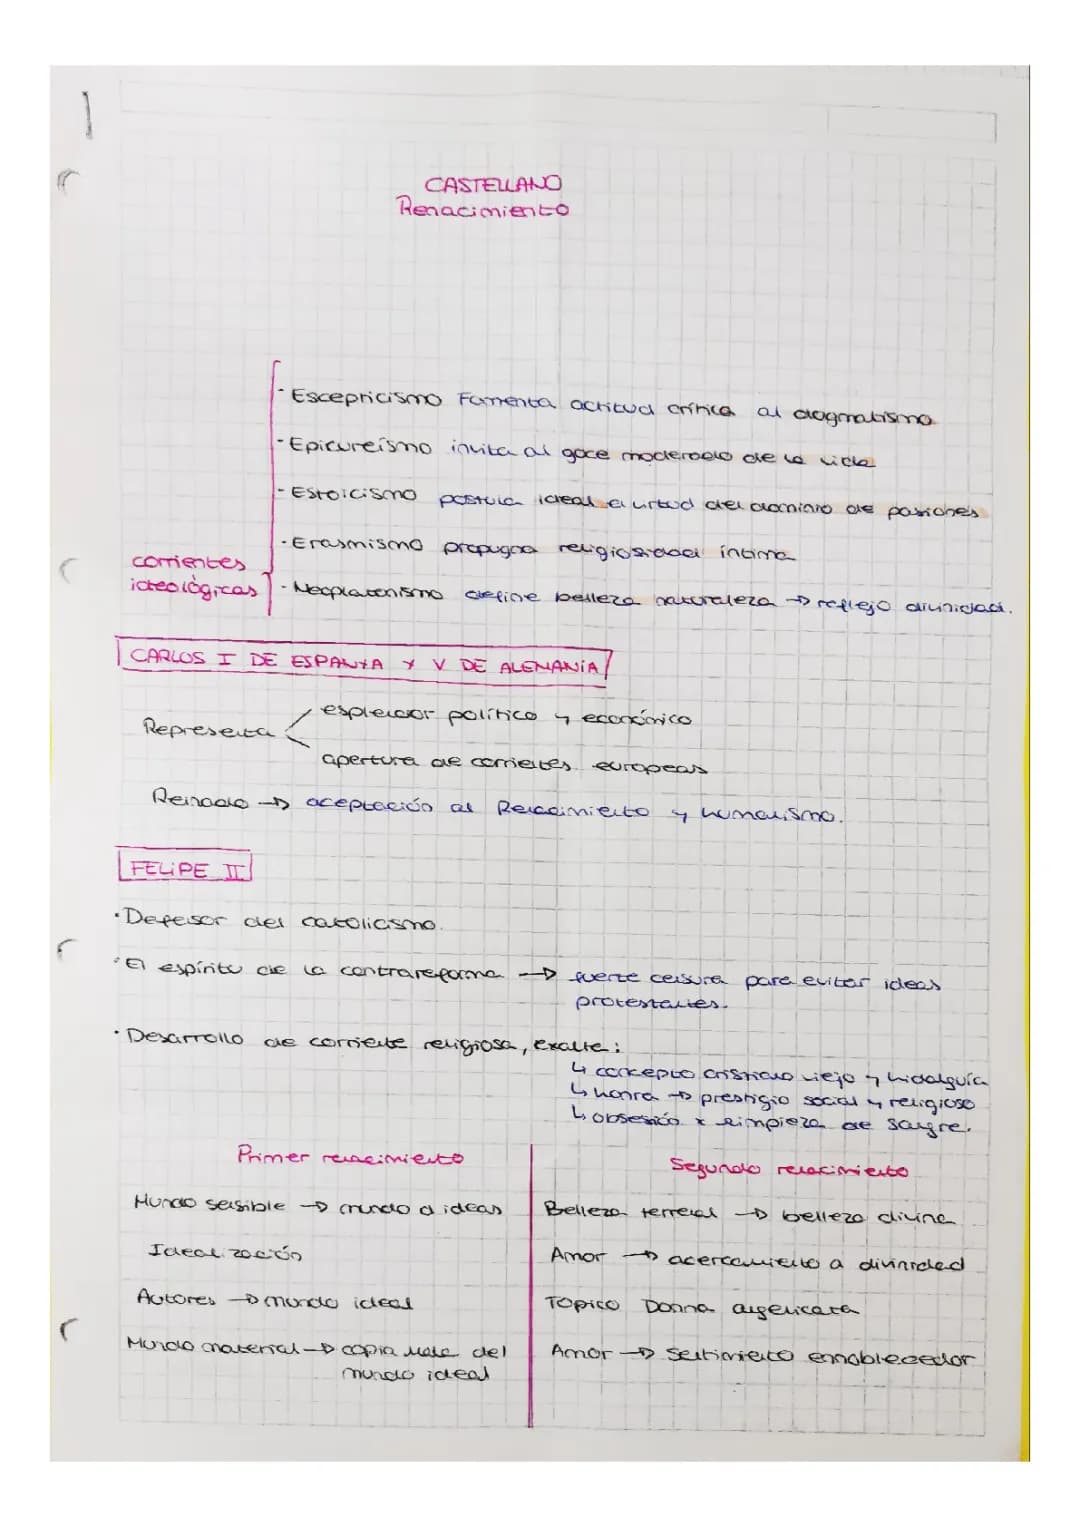 1
CASTELLANO
Renacimiento
· Escepticismo Fomenta actitud crítica al dogmatismo
· Epicureísmo invita al goce moderado de la vida
· Estoicismo postula ideal virtud del dominio de pasiones
· Erasmismo propugna religiosidad íntima
corrientes
ideológicas
· Neoplatonismo define belleza naturaleza → reflejo divinidad.
CARLOS I DE ESPANYA Y V DE ALEMANIA
Representa
esplendor político y económico
apertura de corrientes europeas
Reinado → aceptación al Renacimiento y humanismo.
FELIPE II
· Defensor del catolicismo.
· El espíritu de la contrareforma → fuerte censura para evitar ideas
protestantes.
· Desarrollo de corriente religiosa, exalte:
↳ concepto cristiano viejo y hidalguía
↳ honra → prestigio social y religioso
↳ obsesión x limpieza de sangre.
Primer renacimiento
Mundo sensible → mundo d ideas
Idealización
Autores → mundo ideal
Mundo material → copia mala del
mundo ideal
Segundo renacimiento
Belleza terrenal → belleza divina
Amor → acercamiento a divinidad
Tópico Donna angelicata
Amor → sentimiento ennoblecedor